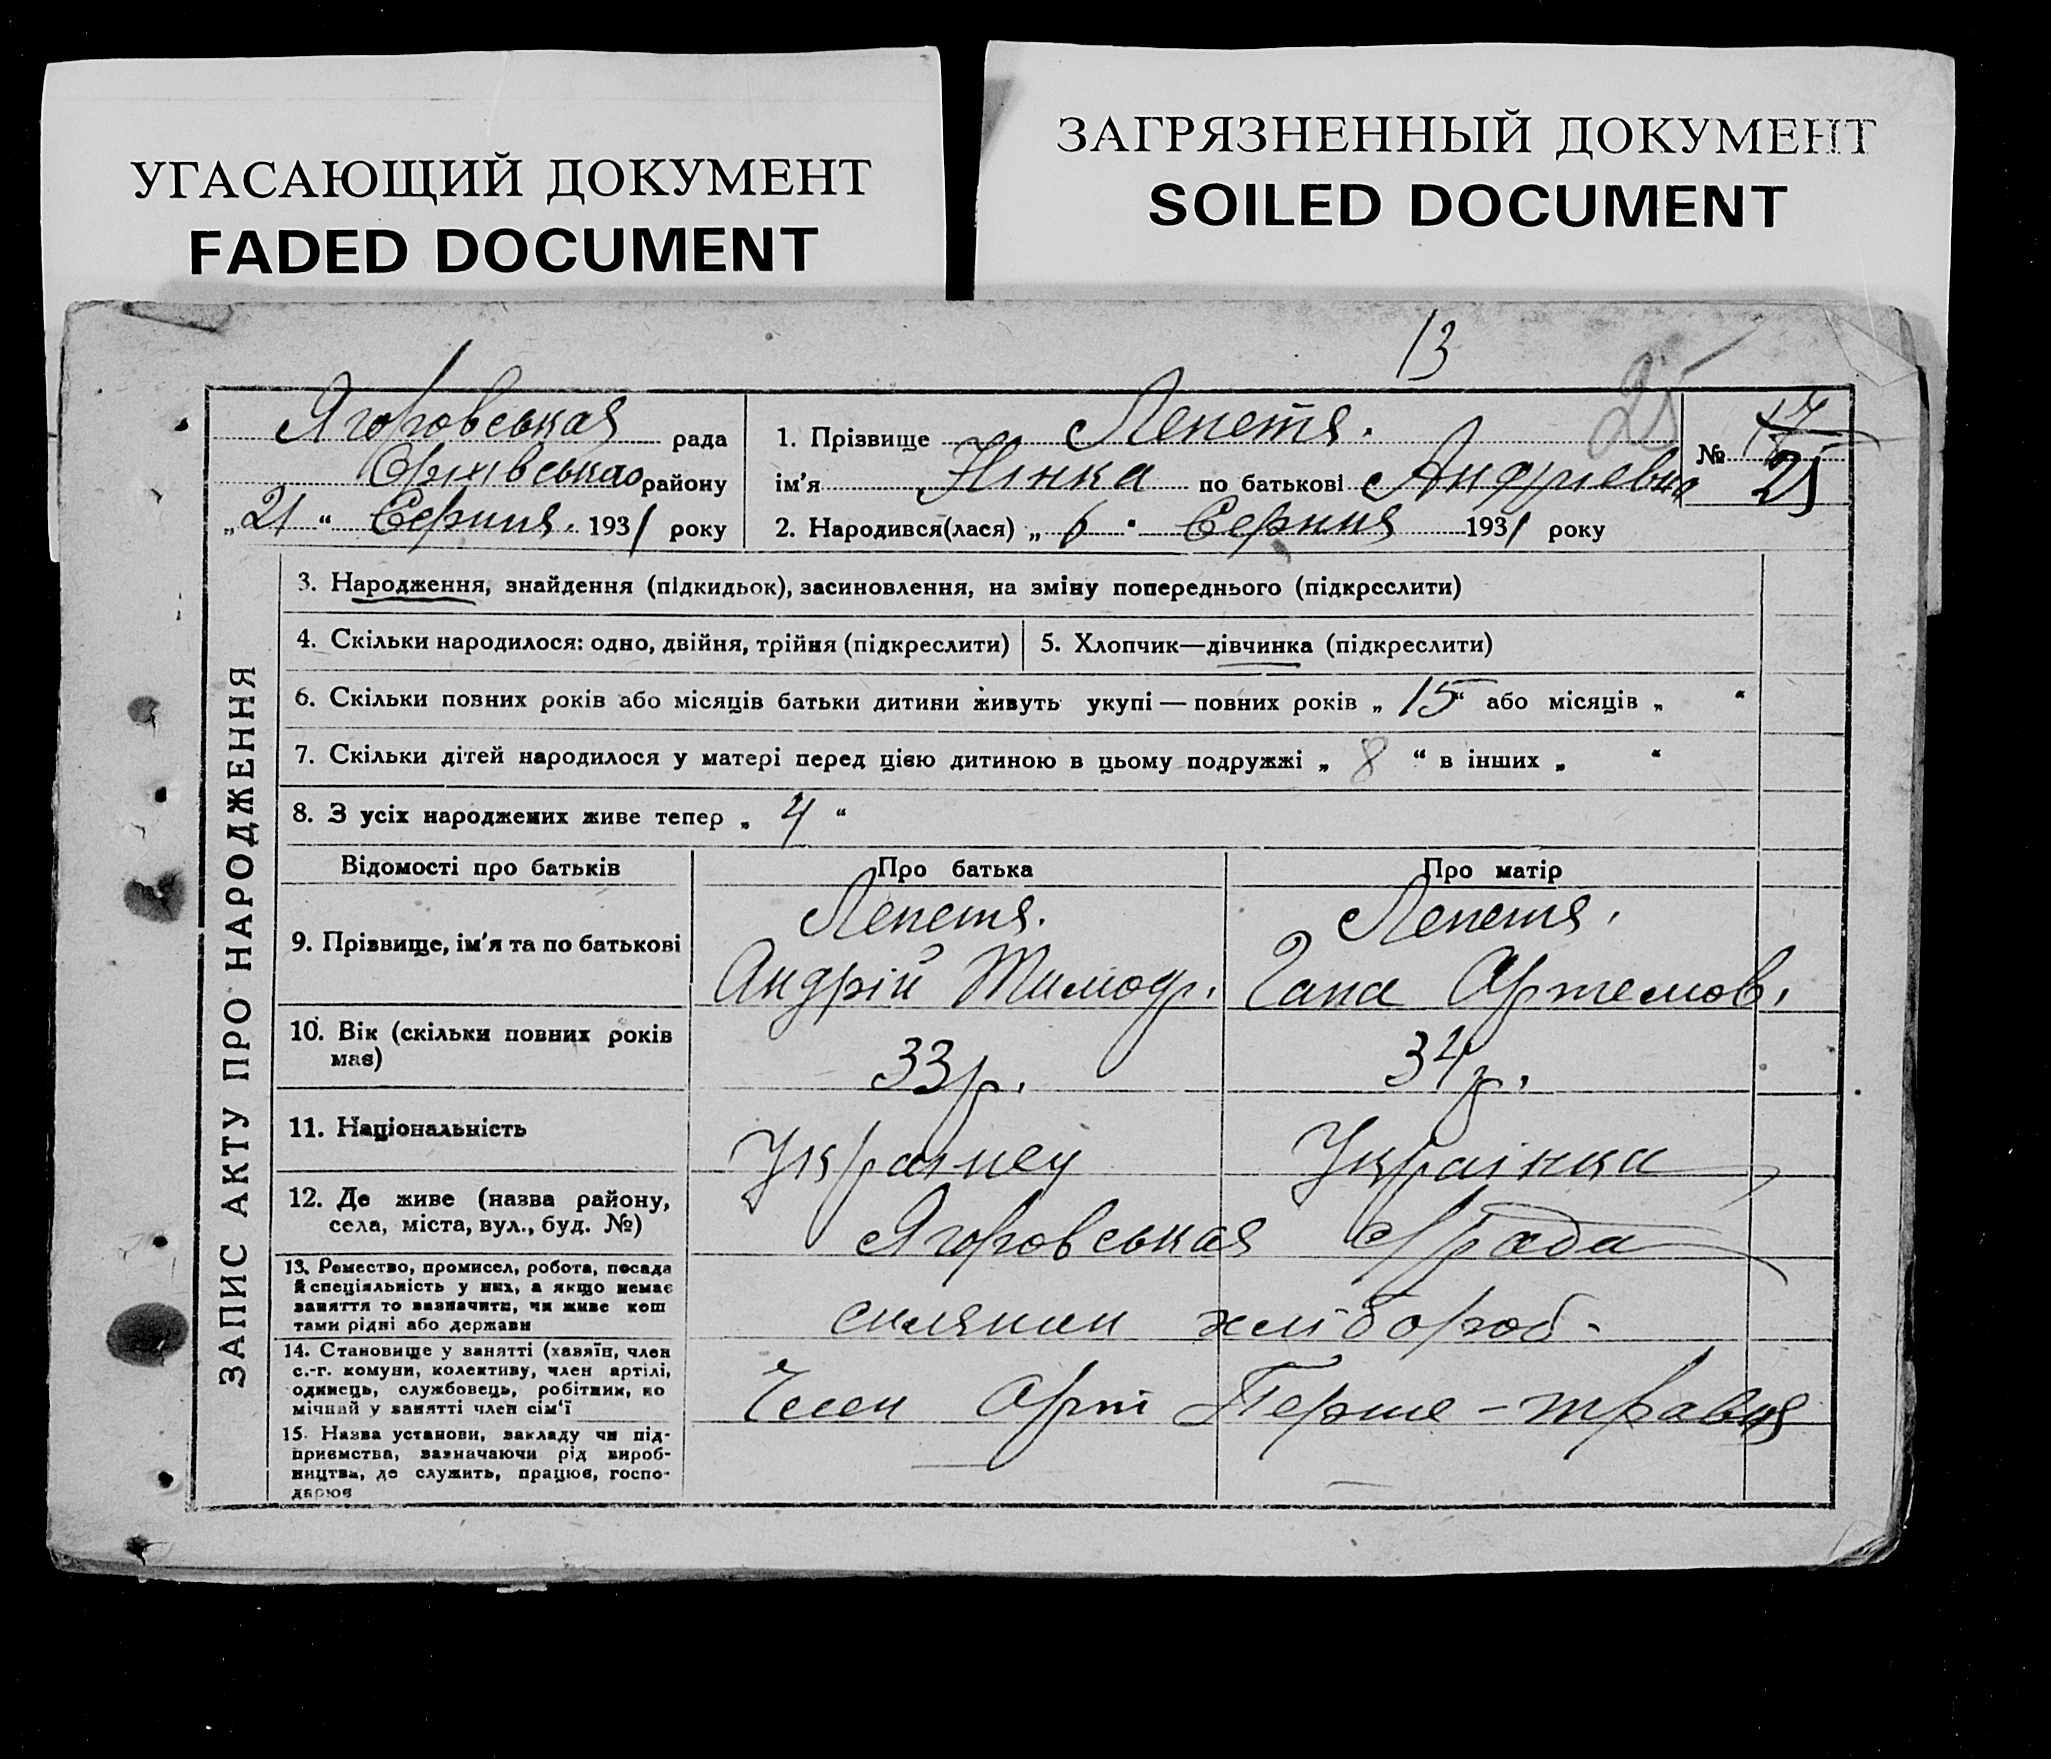 УГАСАЮЩИЙ ДОКУМЕНТ
FADED DOCUMENT
ЗАГРЯЗНЕННЫЙ ДОКУМЕНТ
SOILED DOCUMENT
13
25
Ягоровськая рада
району
„21“ Серпня. 1931 року
1. Прізвище Лепетя.
ім'я Нінка по батькові Андріевна
2. Народився(лася) „6“ Серпня 1931 року
№ 17
25
ЗАПИС АКТУ ПРО НАРОДЖЕННЯ
3. Народження, знайдення (підкидьок), засиновлення, на зміну попереднього (підкреслити)
4. Скільки народилося: одно, двійня, трійня (підкреслити)
5. Хлопчик—дівчинка (підкреслити)
6. Скільки повних років або місяців батьки дитини живуть укупі — повних років „15“ або місяців „ “
7. Скільки дітей народилося у матері перед цією дитиною в цьому подружжі „8“ в інших „ “
8. З усіх народжених живе тепер „4“
Відомості про батьків
Про батька
Про матір
9. Прізвище, ім'я та по батькові
Лепетя.
Андрій Тимофр.
Лепетя.
Гапа Артемов.
10. Вік (скільки повних років
має)
33 р.
34 р.
11. Національність
Украінец
Украінка
12. Де живе (назва району,
села, міста, вул., буд. №)
Ягоровськая с/рада
13. Ремество, промисел, робота, посада
й спеціяльність у них, а якщо немає
заняття то визначити, чи живе кош
тами рідні або держави
силянин хлібороб-
14. Становище у занятті (хазяїн, член
с.-г. комуни, колективу, член артілі,
одинець, службовець, робітник, по
мічний у занятті член сім'ї
Член Арті Перше-травня
15. Назва установи, закладу чи під-
приємства, зазначаючи рід вироб-
ництва, де служить, працює, госпо-
дарює